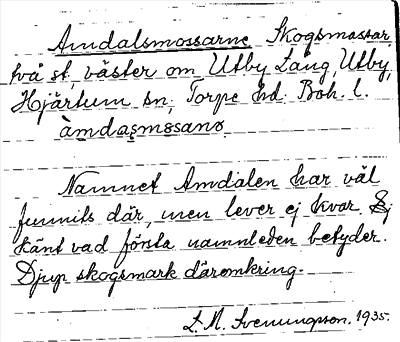 Amdalsmossarne Skogsmossar,
två st, väster om Utby Lång, Utby,
Hjärtum sn, Torpe hd. Boh. l.
àmdasmɷsanɷ
Namnet Amdalen har väl
funnits där, men lever ej kvar. Ej
känt vad första namnleden betyder.
Djup skogsmark däromkring.
L. M. Svenungsson. 1935.